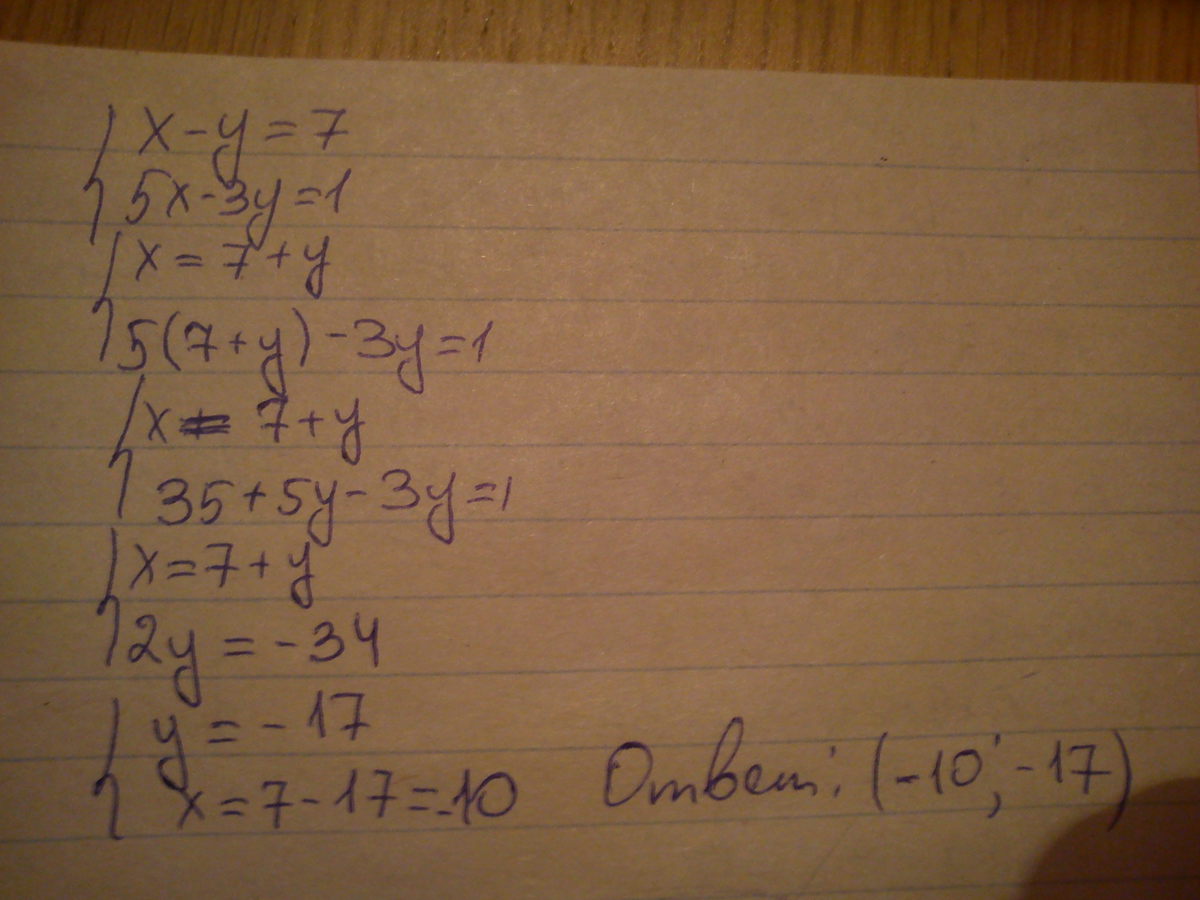 x-y=7
5x-3y=1
x=7+y
5(7+y)-3y=1
x = 7+y
35+5y-3y=1
x=7+y
2y=-34
y=-17
x=7-17=-10 Ответ: (-10; -17)